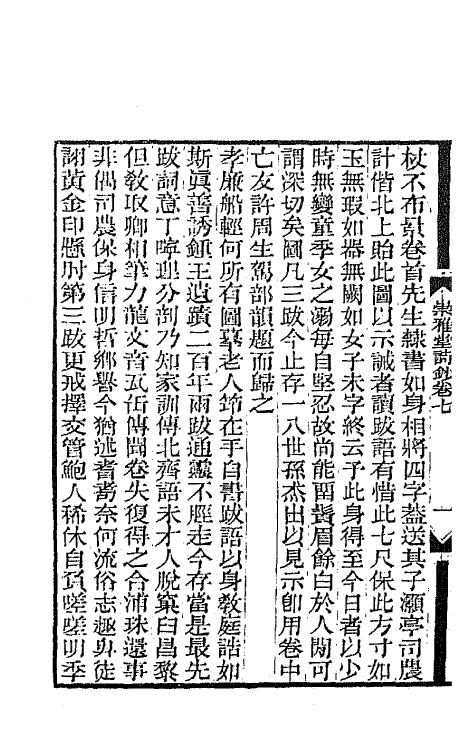 崇雅堂詩鈔卷七
一
杖不布景卷首先生隸書如身相將四字葢送其子灝亭司農
計偕北上貽此圖以示誡者讀跋語有惜此七尺保此方寸如
玉無瑕如器無闕如女子未字終云予此身得至今日者以少
時無孌童季女之溺每自堅忍故尚能留鬢眉餘白於人閒可
謂深切矣圖凡三跋今止存一八世孫杰出以見示卽用卷中
亡友許周生駕部韻題而歸之
孝廉船輕何所有圖摹老人笻在手自書跋語以身教庭誥如
斯眞善誘鎮王遺蹟二百年兩跋通靈不脛走今存當是最先
跋詞意丁寧理分剖乃知家訓傳北齊語未才人脫窠臼昌黎
但敎取卿相筆力龍文音瓦缶傳聞卷失復得之合浦珠還事
非偶司農保身信明哲鄉譽今猶述耆耇奈何流俗志趣奂徒
詡黃金印懸肘第三跋更戒擇交管鮑人稀休自負嗟嗟明季